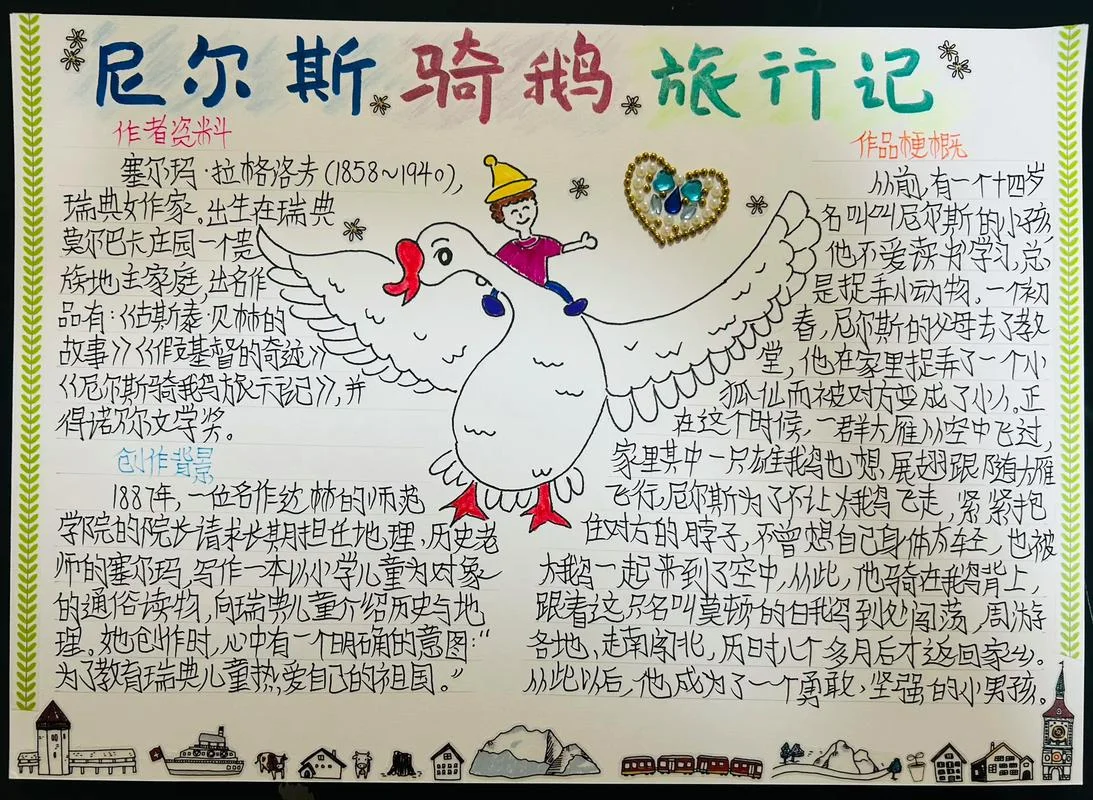 尼尔斯骑鹅旅行记
作者资料
塞尔玛·拉格洛夫(1858~1940),
瑞典女作家。出生在瑞典
莫尔巴卡庄园一个贵
族地主家庭,出名作
品有:《古斯泰·贝林的
故事》《假基督的奇迹》
《尼尔斯骑鹅旅行记》,并
得诺贝尔文学奖。
创作背景
1887年,一位名作达林的师范
学院的院长请求长期担任地理,历史老
师的塞尔玛,写作一本以小学儿童为对象
的通俗读物,向瑞典儿童介绍历史与地
理。她创作时,心中有一个明确的意图:“
为了教育瑞典儿童热爱自己的祖国。”
作品梗概
从前,有一个十四岁
名叫叫尼尔斯的小孩
他不爱读书学习,总
是捉弄小动物。一个初
春,尼尔斯的父母去了教
堂,他在家里捉弄了一个小
狐仙而被对方变成了小人。正
在这个时候,一群大雁从空中飞过,
家里其中一只雄鹅也想展翅跟随大雁
飞行,尼尔斯为了不让大鹅飞走,紧紧抱
住对方的脖子,不曾想自己身体太轻,也被
大鹅一起来到了空中,从此,他骑在鹅背上,
跟着这只名叫莫顿的白鹅到处闯荡,周游
各地、走南闯北,历时八个多月后才返回家乡。
从此以后,他成为了一个勇敢,坚强的小男孩。